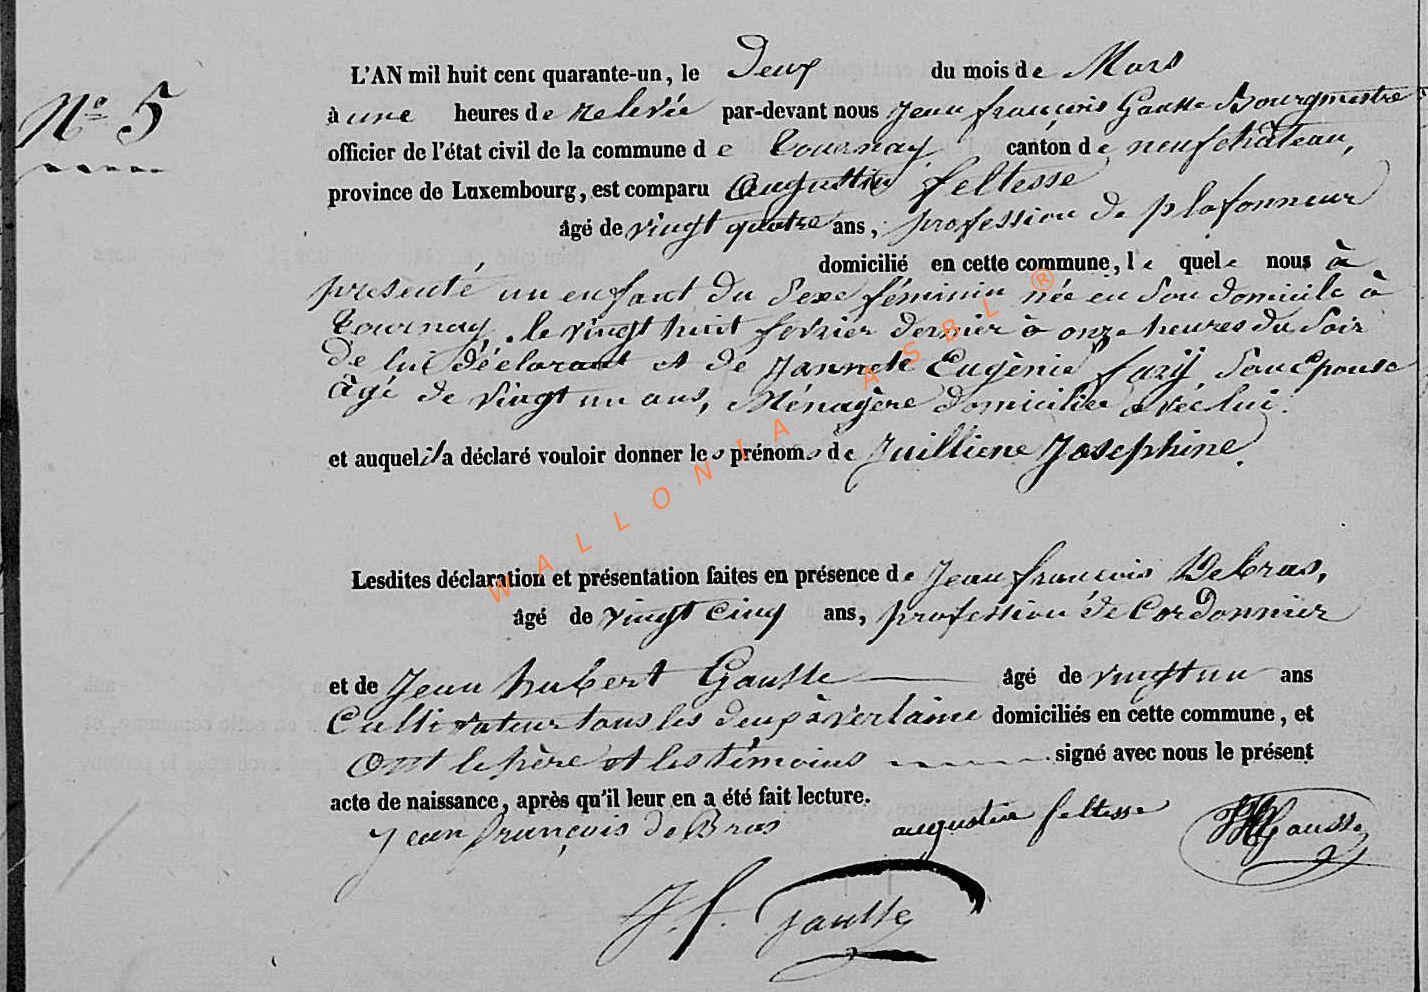 L'AN mil huit cent quarante-un, le Deux du mois de Mars
Nº 5
à une heures de relevée par-devant nous Jean françois Gausse Bourgmestre
officier de l'état civil de la commune de Tournay canton de neufchâteau,
province de Luxembourg, est comparu Augustin feltesse
âgé de vingt quatre ans, profession de plafonneur
domicilié en cette commune, le quel nous à
presenté un enfant du Sexe féminin née en Son domicile à
Tournay, le vingt huit fevrier dernier à onze heures du Soir
de lui déclarant et de Jannete Eugènie fazÿ Son Epouse
âgé de vingt un ans, Ménagère domiciliée avec lui.
et auquel il a déclaré vouloir donner les prénoms de Juilliene Josephine.
Lesdites déclaration et présentation faites en présence de Jean françois Debras,
âgé de vingt cinq ans, profession de Cordonnier
et de Jean hubert Gausse âgé de vingt un ans
Cultivateur tous les deux à verlaine domiciliés en cette commune, et
Ont le père et les témoins signé avec nous le présent
acte de naissance, après qu'il leur en a été fait lecture.
Jean françois deBras augustin feltesse JHGausse
J. f. Gausse
WALLONIA ASBL ®